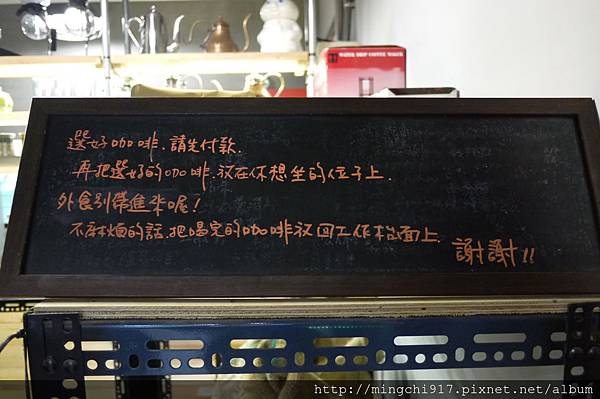 WATER DRIP COFFEE MAKER
選好咖啡.請先付款.
再把選好的咖啡.放在你想坐的位子上.
外食別帶進來喔!
不麻煩的話.把喝完的咖啡放回工作檯面上.
謝謝!!
http://mingchi917.pixnet.net/album